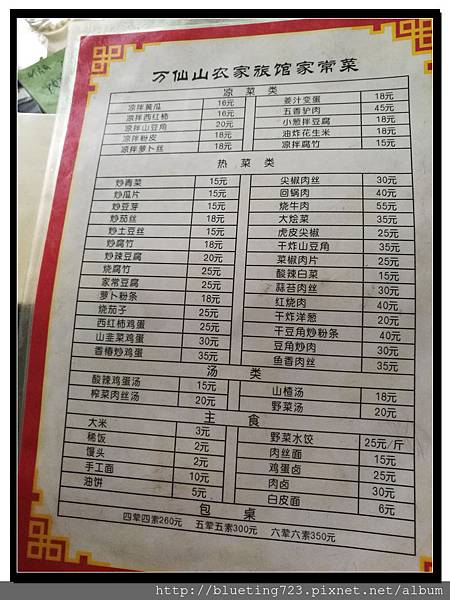 万仙山农家旅馆家常菜
凉 菜 类
凉拌黄瓜 16元 姜汁变蛋 18元
凉拌西红柿 16元 五香驴肉 45元
凉拌山豆角 20元 小葱拌豆腐 18元
凉拌粉皮 18元 油炸花生米 18元
凉拌萝卜丝 18元 凉拌腐竹 15元
热 菜 类
炒青菜 15元 尖椒肉丝 30元
炒瓜片 15元 回锅肉 40元
炒豆芽 15元 烧牛肉 55元
炒茄丝 18元 大烩菜 35元
炒土豆丝 15元 虎皮尖椒 25元
炒腐竹 18元 干炸山豆角 35元
炒辣豆腐 20元 菜椒肉片 25元
烧腐竹 25元 酸辣白菜 15元
家常豆腐 25元 蒜苔肉丝 30元
萝卜粉条 18元 红烧肉 40元
烧茄子 25元 干炸洋葱 20元
西红柿鸡蛋 25元 干豆角炒粉条 40元
山韭菜鸡蛋 30元 豆角炒肉 30元
香椿炒鸡蛋 35元 鱼香肉丝 35元
汤 类
酸辣鸡蛋汤 15元 山楂汤 18元
榨菜肉丝汤 20元 野菜汤 20元
主 食
大米 3元 野菜水饺 25元/斤
稀饭 2元 肉丝面 15元
馒头 2元 鸡蛋卤 25元
手工面 10元 肉卤 30元
油饼 5元 白皮面 6元
包 桌
四荤四素260元 五荤五素300元 六荤六素350元
http://blueting723.pixnet.net/album